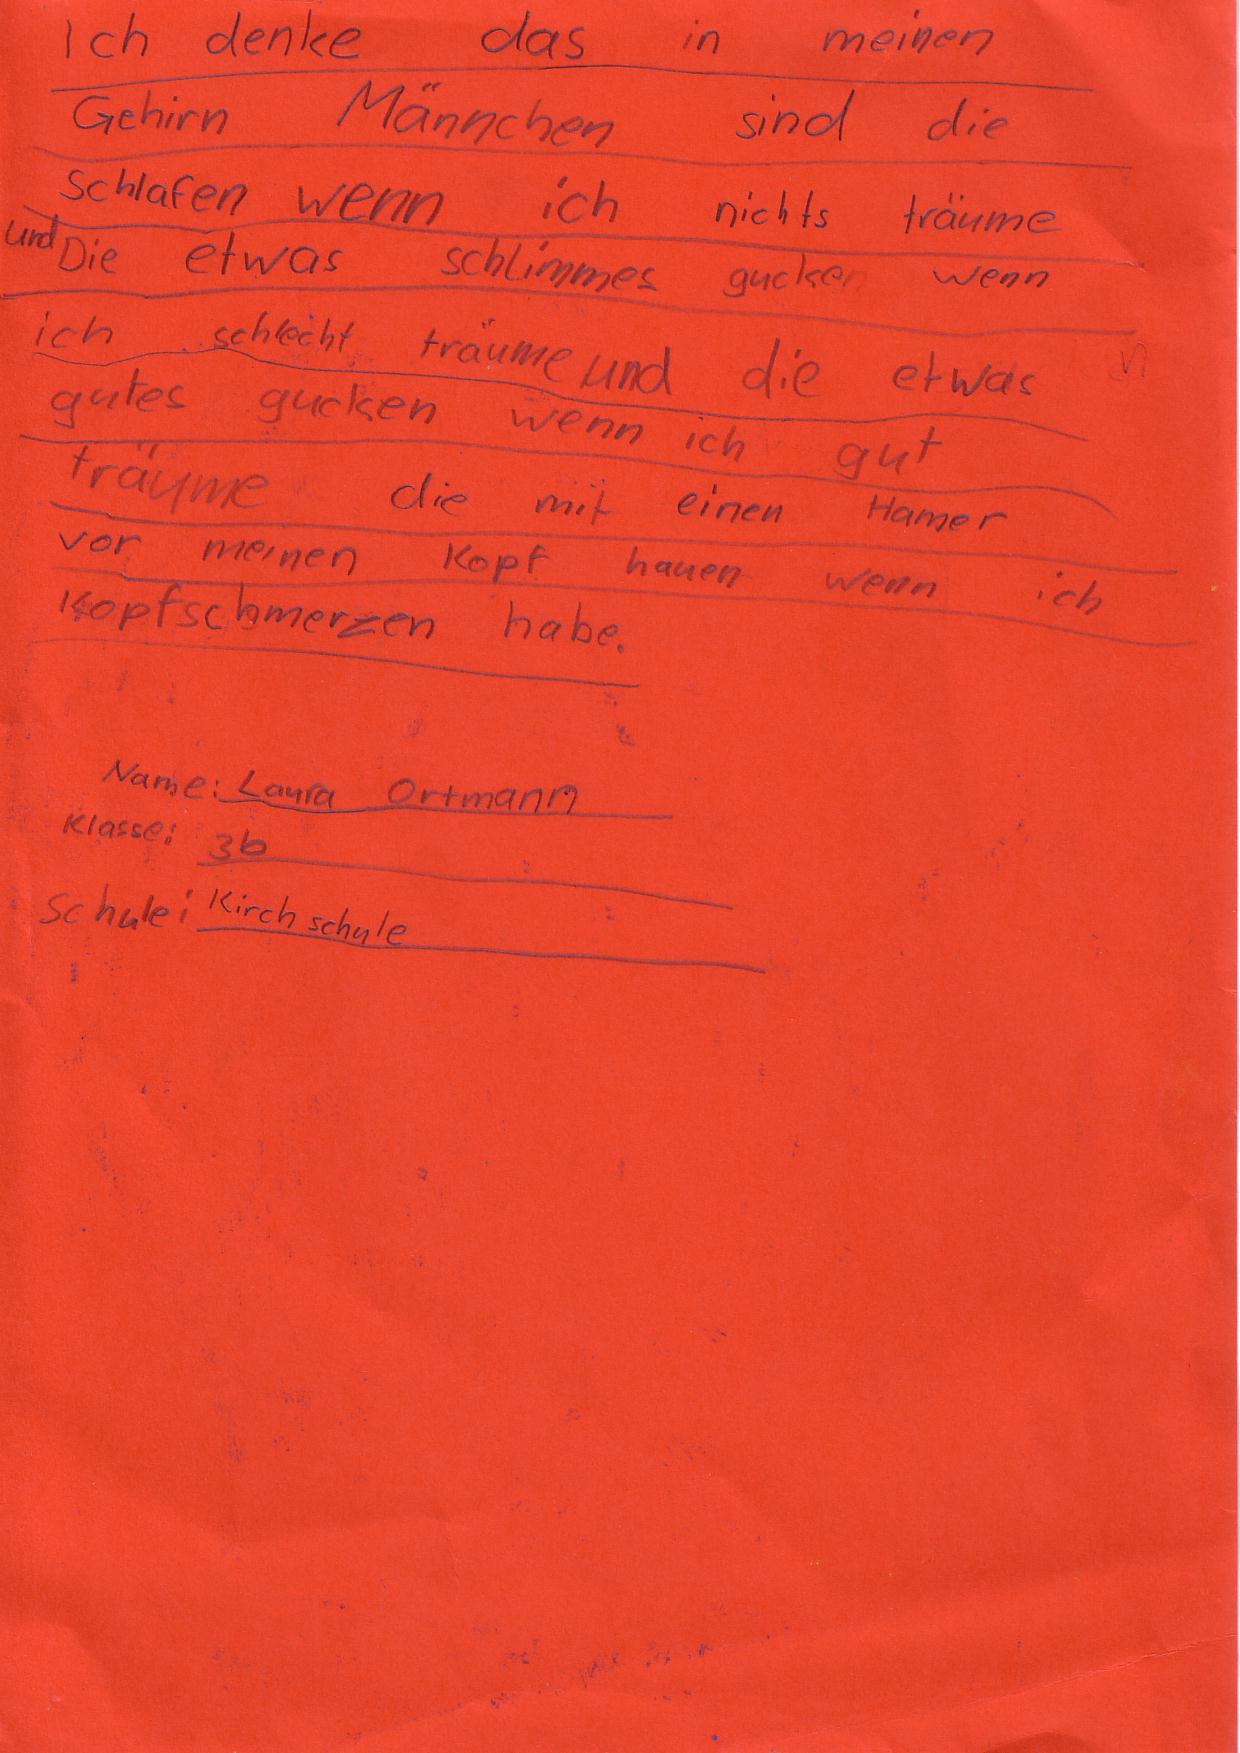 Ich denke das in meinen
Gehirn Männchen sind die
schlafen wenn ich nichts träume
und Die etwas schlimmes gucken wenn
ich schlecht träume und die etwas
gutes gucken wenn ich gut
träume die mit einen Hamer
vor meinen Kopf hauen wenn ich
Kopfschmerzen habe.
Name: Laura Ortmann
Klasse: 3b
Schule: Kirchschule